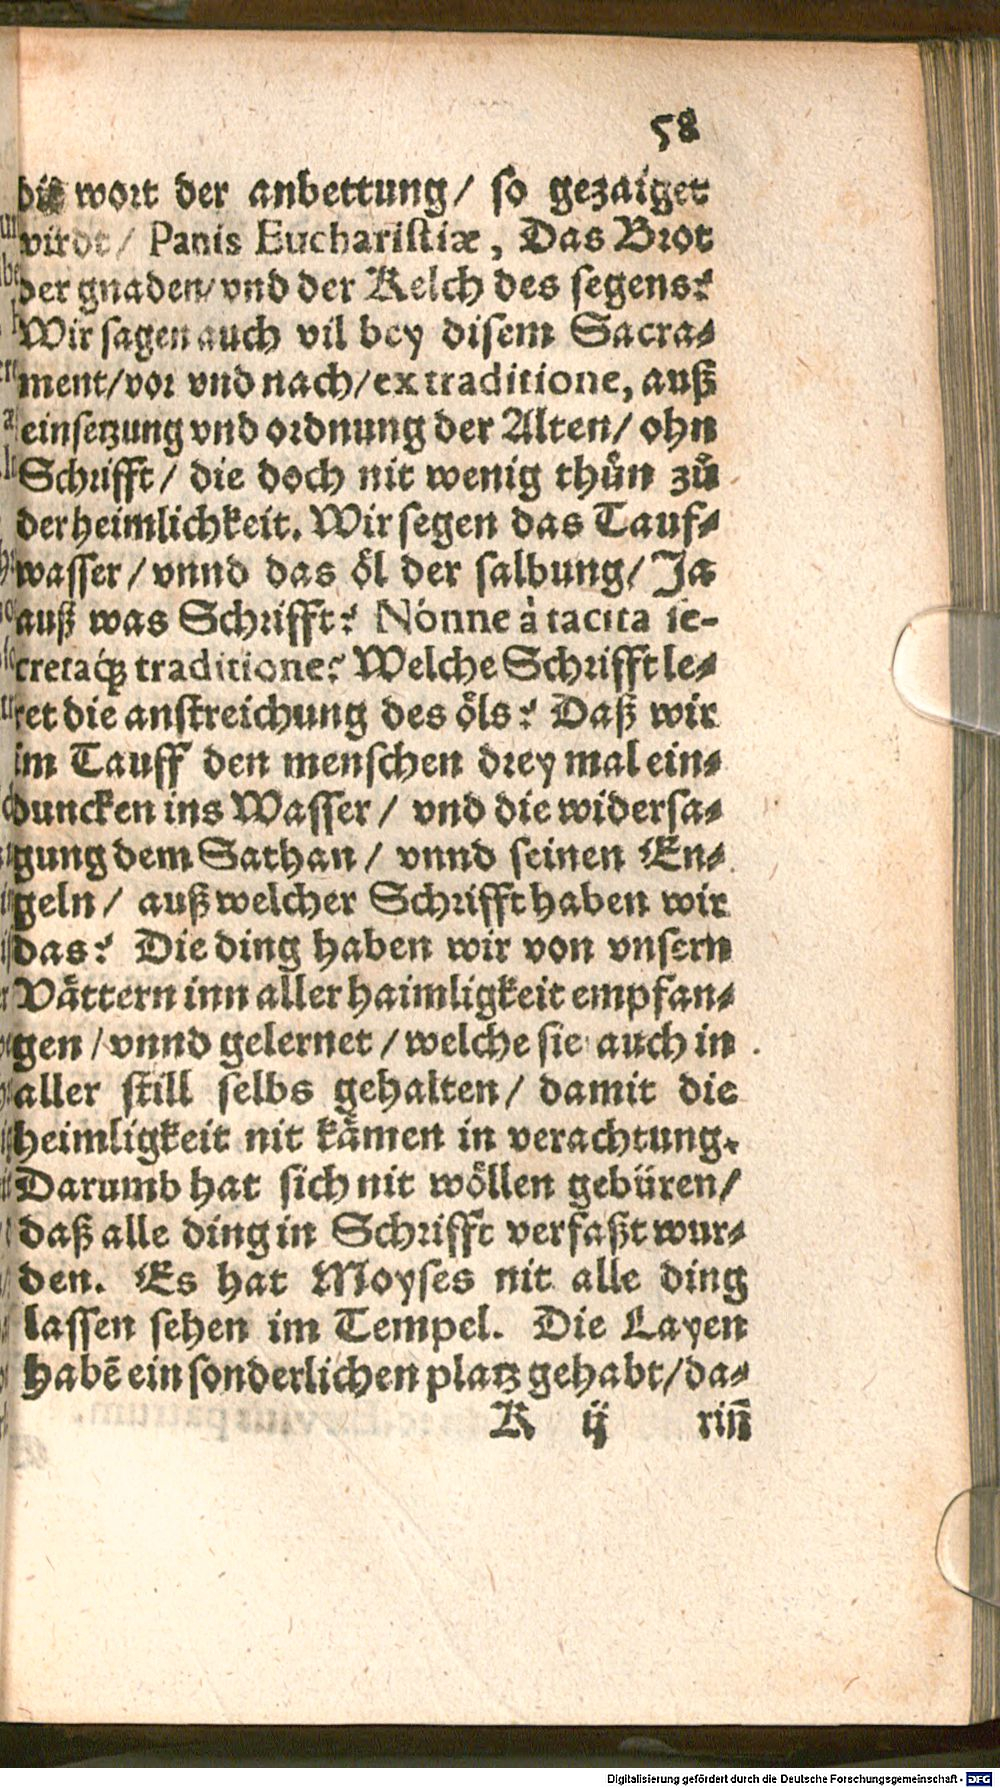 58
die wort der anbettung/ so gezaiget
wirdt/ Panis Euchariſtiæ, Das Brot
der gnaden/vnd der Kelch des segens?
Wir sagen auch vil bey disem Sacra⸗
ment/vor vnd nach/ex traditione, auß
einsetzung vnd ordnung der Alten/ ohn
Schrifft/ die doch nit wenig thůn zů
der heimlichkeit. Wir segen das Tauf⸗
wasser/vnnd das öl der salbung/ Ja
auß was Schrifft? Nónne à tacita ſe-
cretaq́ꝫ traditione? Welche Schrifft le⸗
ret die anstreichung des öls? Daß wir
im Tauff den menschen drey mal ein⸗
duncken ins Wasser/ vnd die widersa⸗
gung dem Sathan/ vnnd seinen En⸗
geln/ auß welcher Schrifft haben wir
das? Die ding haben wir von vnsern
Vättern inn aller haimligkeit empfan⸗
gen/vnnd gelernet/welche sie auch in
aller still selbs gehalten/ damit die
heimligkeit nit kämen in verachtung.
Darumb hat sich nit wöllen gebüren/
daß alle ding in Schrifft verfaßt wur⸗
den. Es hat Moyses nit alle ding
lassen sehen im Tempel. Die Layen
habē ein sonderlichen platz gehabt/da⸗
K ij riñ
Digitalisierung gefördert durch die Deutsche Forschungsgemeinschaft - DFG